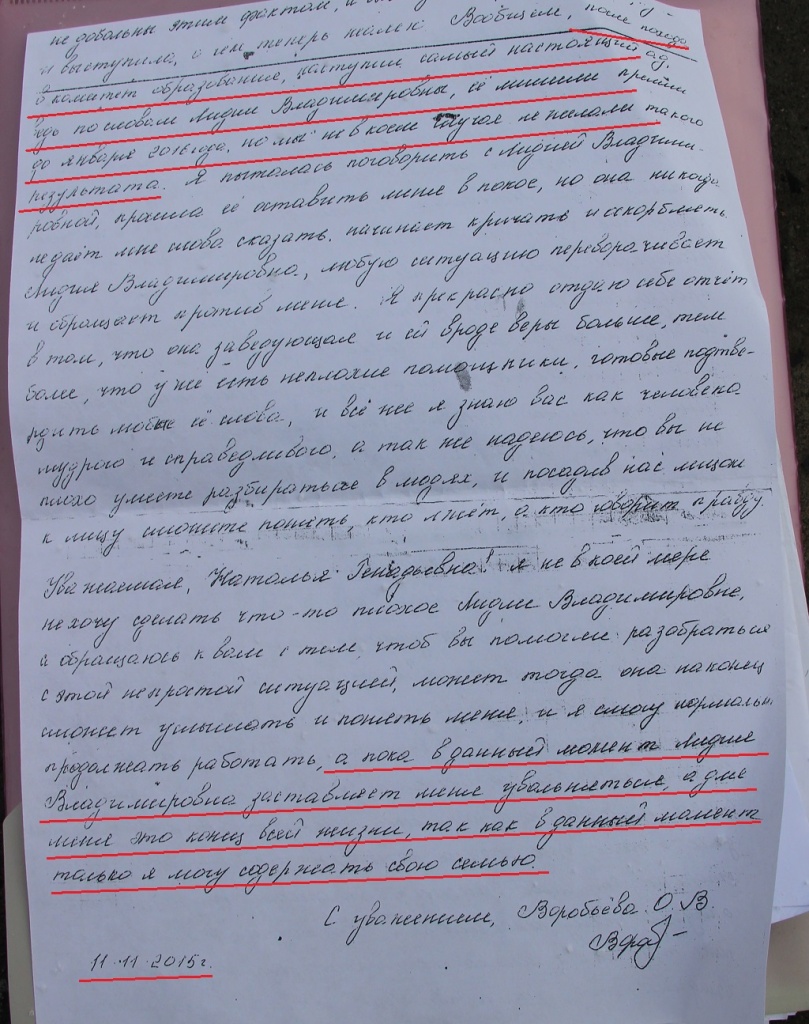 не довольны этим фактом, и
и выступила, о чем теперь жалею. Вообщем, после похода
в комитет образование, наступил самый настоящий ад,
ведь по словам Лидии Владимировны, её лишили премии
до января 2016 года, но мы не в коем случае не желали такого
результата. Я пыталась поговорить с Лидией Владими-
ровной, просила её оставить меня в покое, но она никогда
не даёт мне слова сказать, начинает кричать и оскорблять
Лидия Владимировна, любую ситуацию переворачивает
и обращает против меня. Я прекрасно отдаю себе отчёт
в том, что она заведующая и ей вроде веры больше, тем
более, что уже есть неплохие помощники, готовые подтве-
рдить любые её слова, и всё же я знаю вас как человека
мудрого и справедливого, а так же надеюсь, что вы не
плохо умеете разбираться в людях, и посадив нас лицом
к лицу сможите понять, кто лжёт, а кто говорит правду.
Уважаемая, Наталья Генадьевна! я не в коей мере
не хочу сделать что-то плохое Лидии Владимировне,
а обращаюсь к вам с тем, чтоб вы помогли разобраться
с этой непростой ситуацией, может тогда она наконец
сможет услышать и понять меня, и я смогу нормально
продолжать работать, а пока в данный момент Лидия
Владимировна заставляет меня увольняться, а для
меня это конец всей жизни, так как в данный момент
только я могу содержать свою семью.
С уважением, Воробьёва О.В
11.11.2015г.